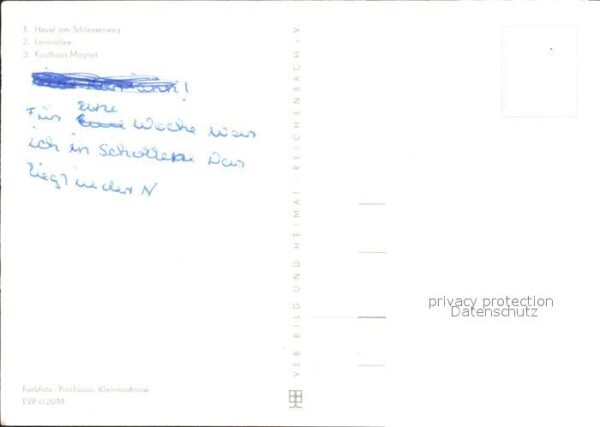 1. Havel am Schleusenweg
2. Leninallee
3. Kaufhaus Magnet
!
eine
Für Woche war
ich in Schollene Das
liegt in der N
VEB BILD UND HEIMAT REICHENBACH i.V
privacy protection
Datenschutz
Farbfoto: Kleinmachnow
EVP 0,20 M